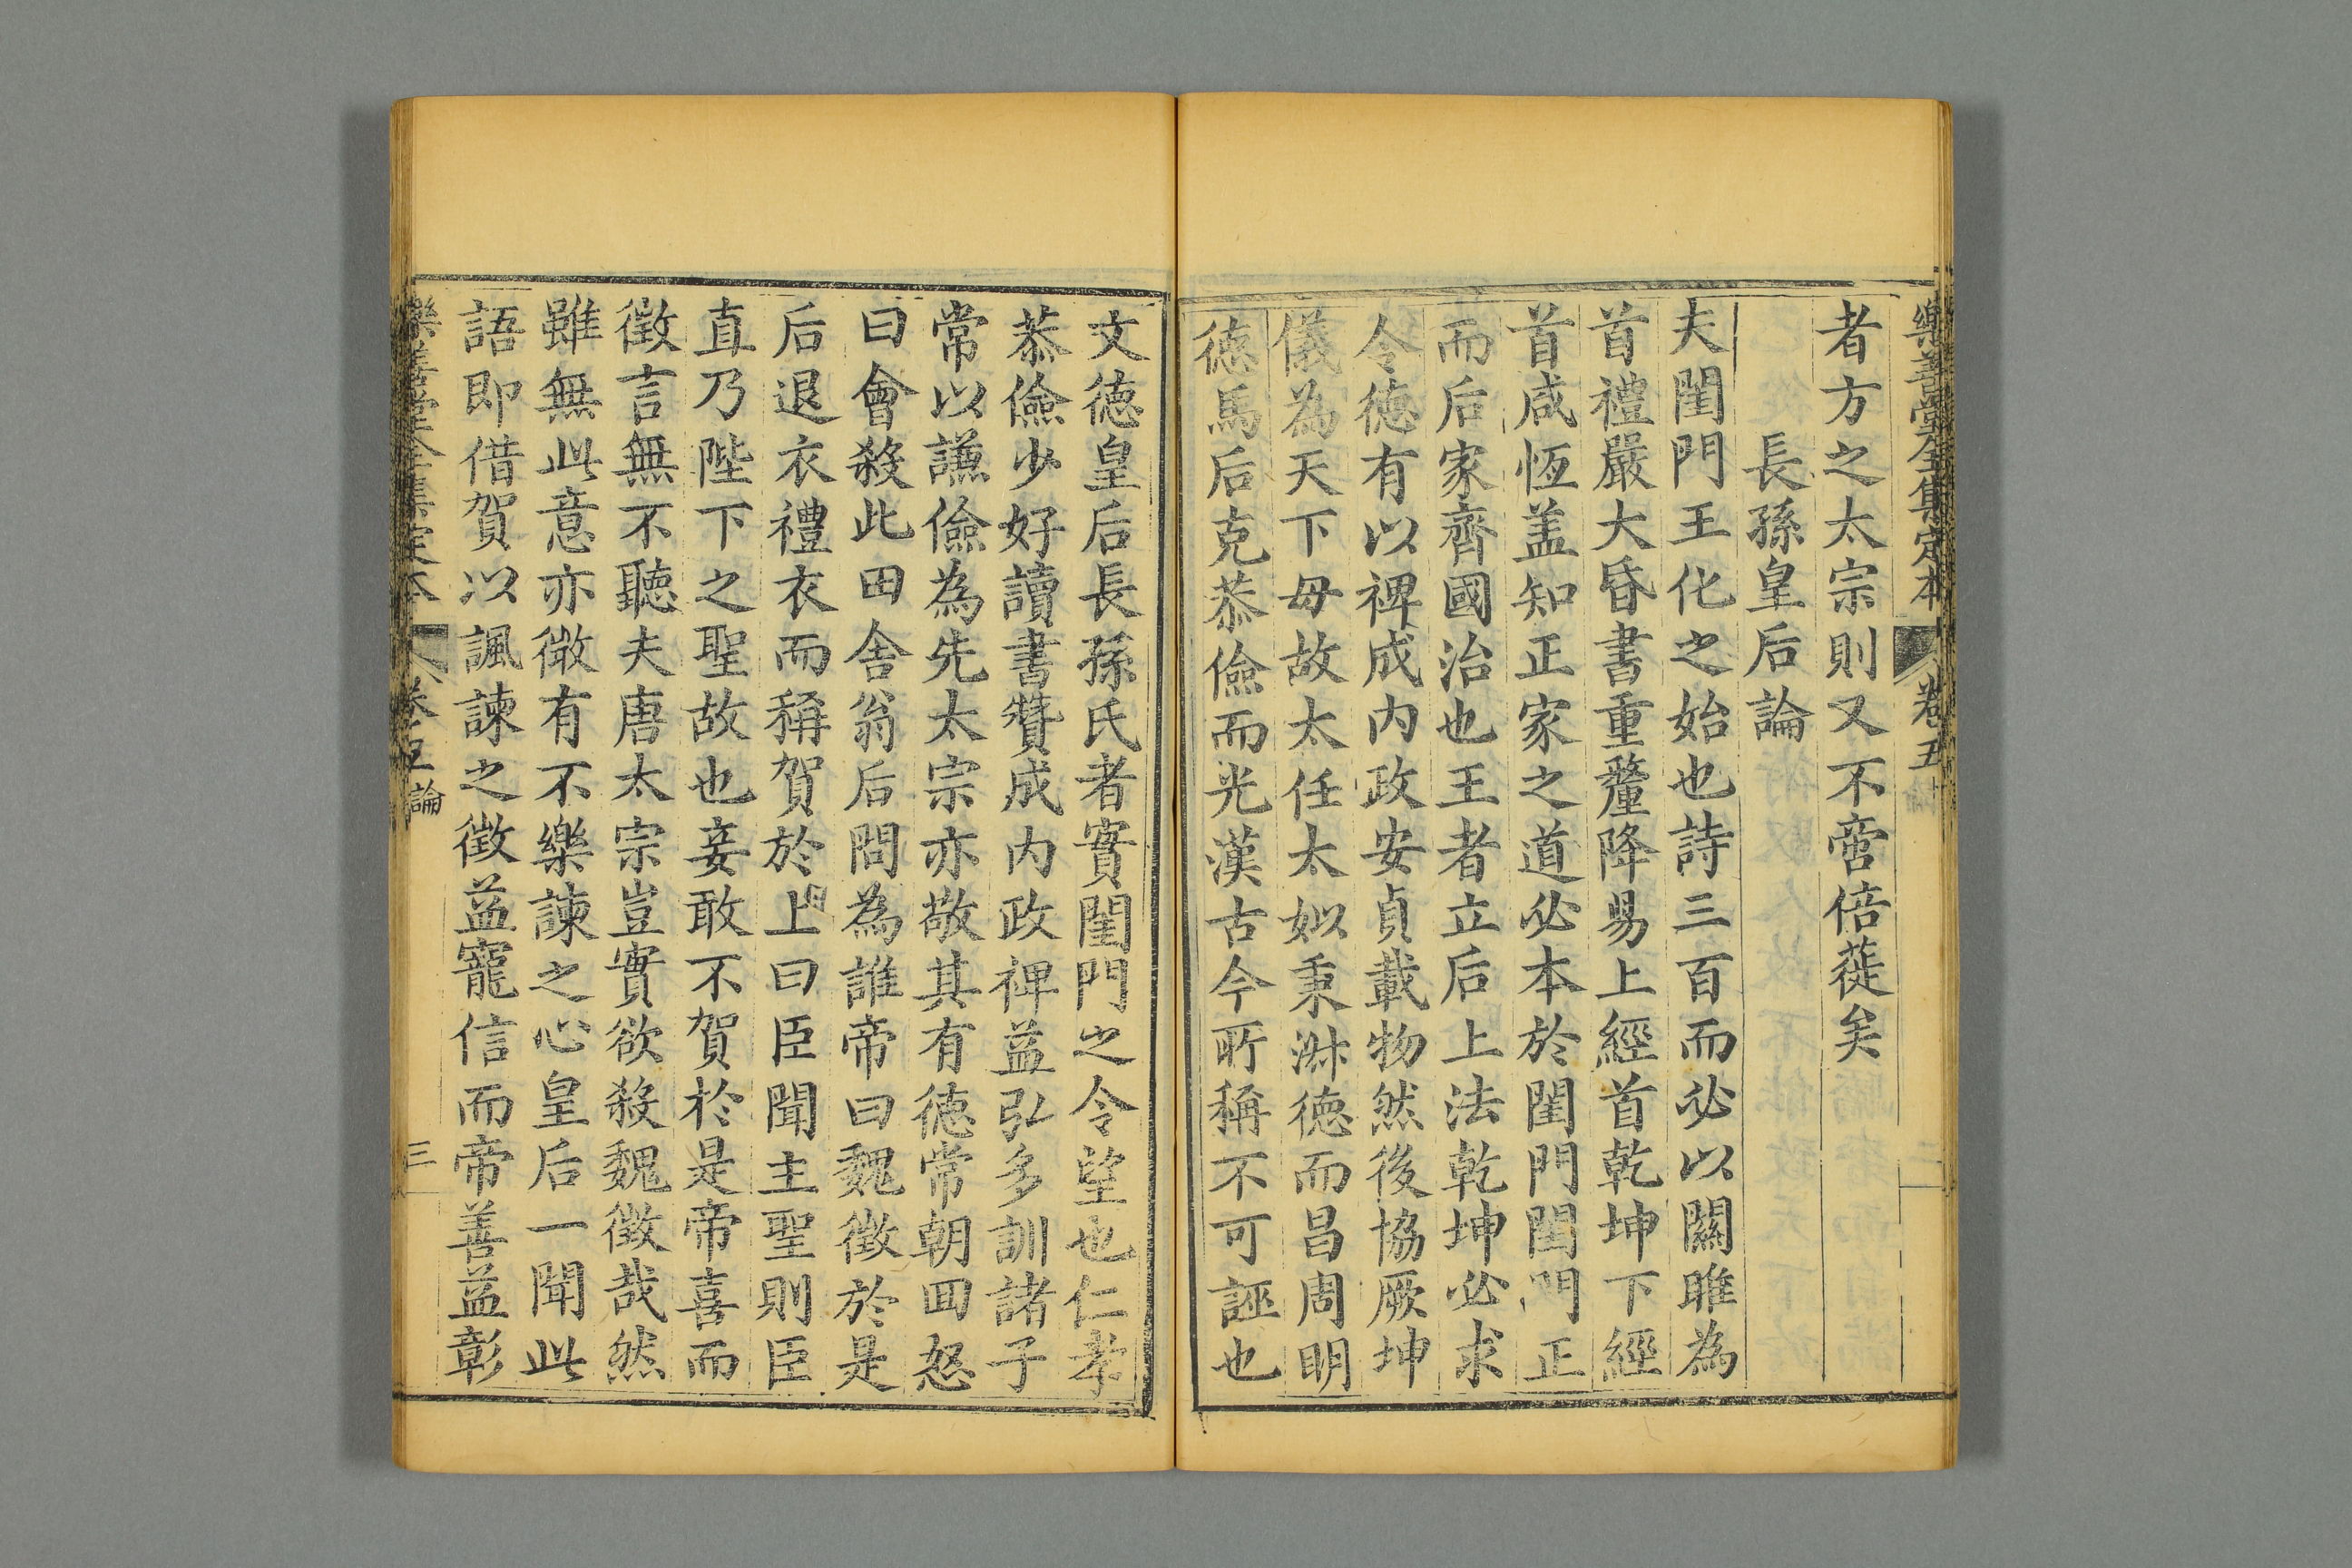 樂善堂全集定本 卷五 二
者方之太宗則又不啻倍蓰矣
長孫皇后論
夫閨門王化之始也詩三百而必以關雎為
首禮嚴大昏書重釐降易上經首乾坤下經
首咸恆盖知正家之道必本於閨門閨門正
而后家齊國治也王者立后上法乾坤必求
令徳有以裨成内政安貞載物然後協厥坤
儀為天下母故太任太姒秉淑徳而昌周明
徳馬后克恭儉而光漢古今所稱不可誣也
文徳皇后長孫氏者實閨門之令望也仁孝
恭儉少好讀書贊成内政裨益弘多訓諸子
常以謙儉為先太宗亦敬其有徳常朝囬怒
曰會殺此田舍翁后問為誰帝曰魏徵於是
后退衣禮衣而稱賀於上曰臣聞主聖則臣
直乃陛下之聖故也妾敢不賀於是帝喜而
徵言無不聽夫唐太宗豈實欲殺魏徵哉然
雖無此意亦微有不樂諫之心皇后一聞此
語即借賀以諷諫之徵益寵信而帝善益彰
樂善堂全集定本 卷五 論 三